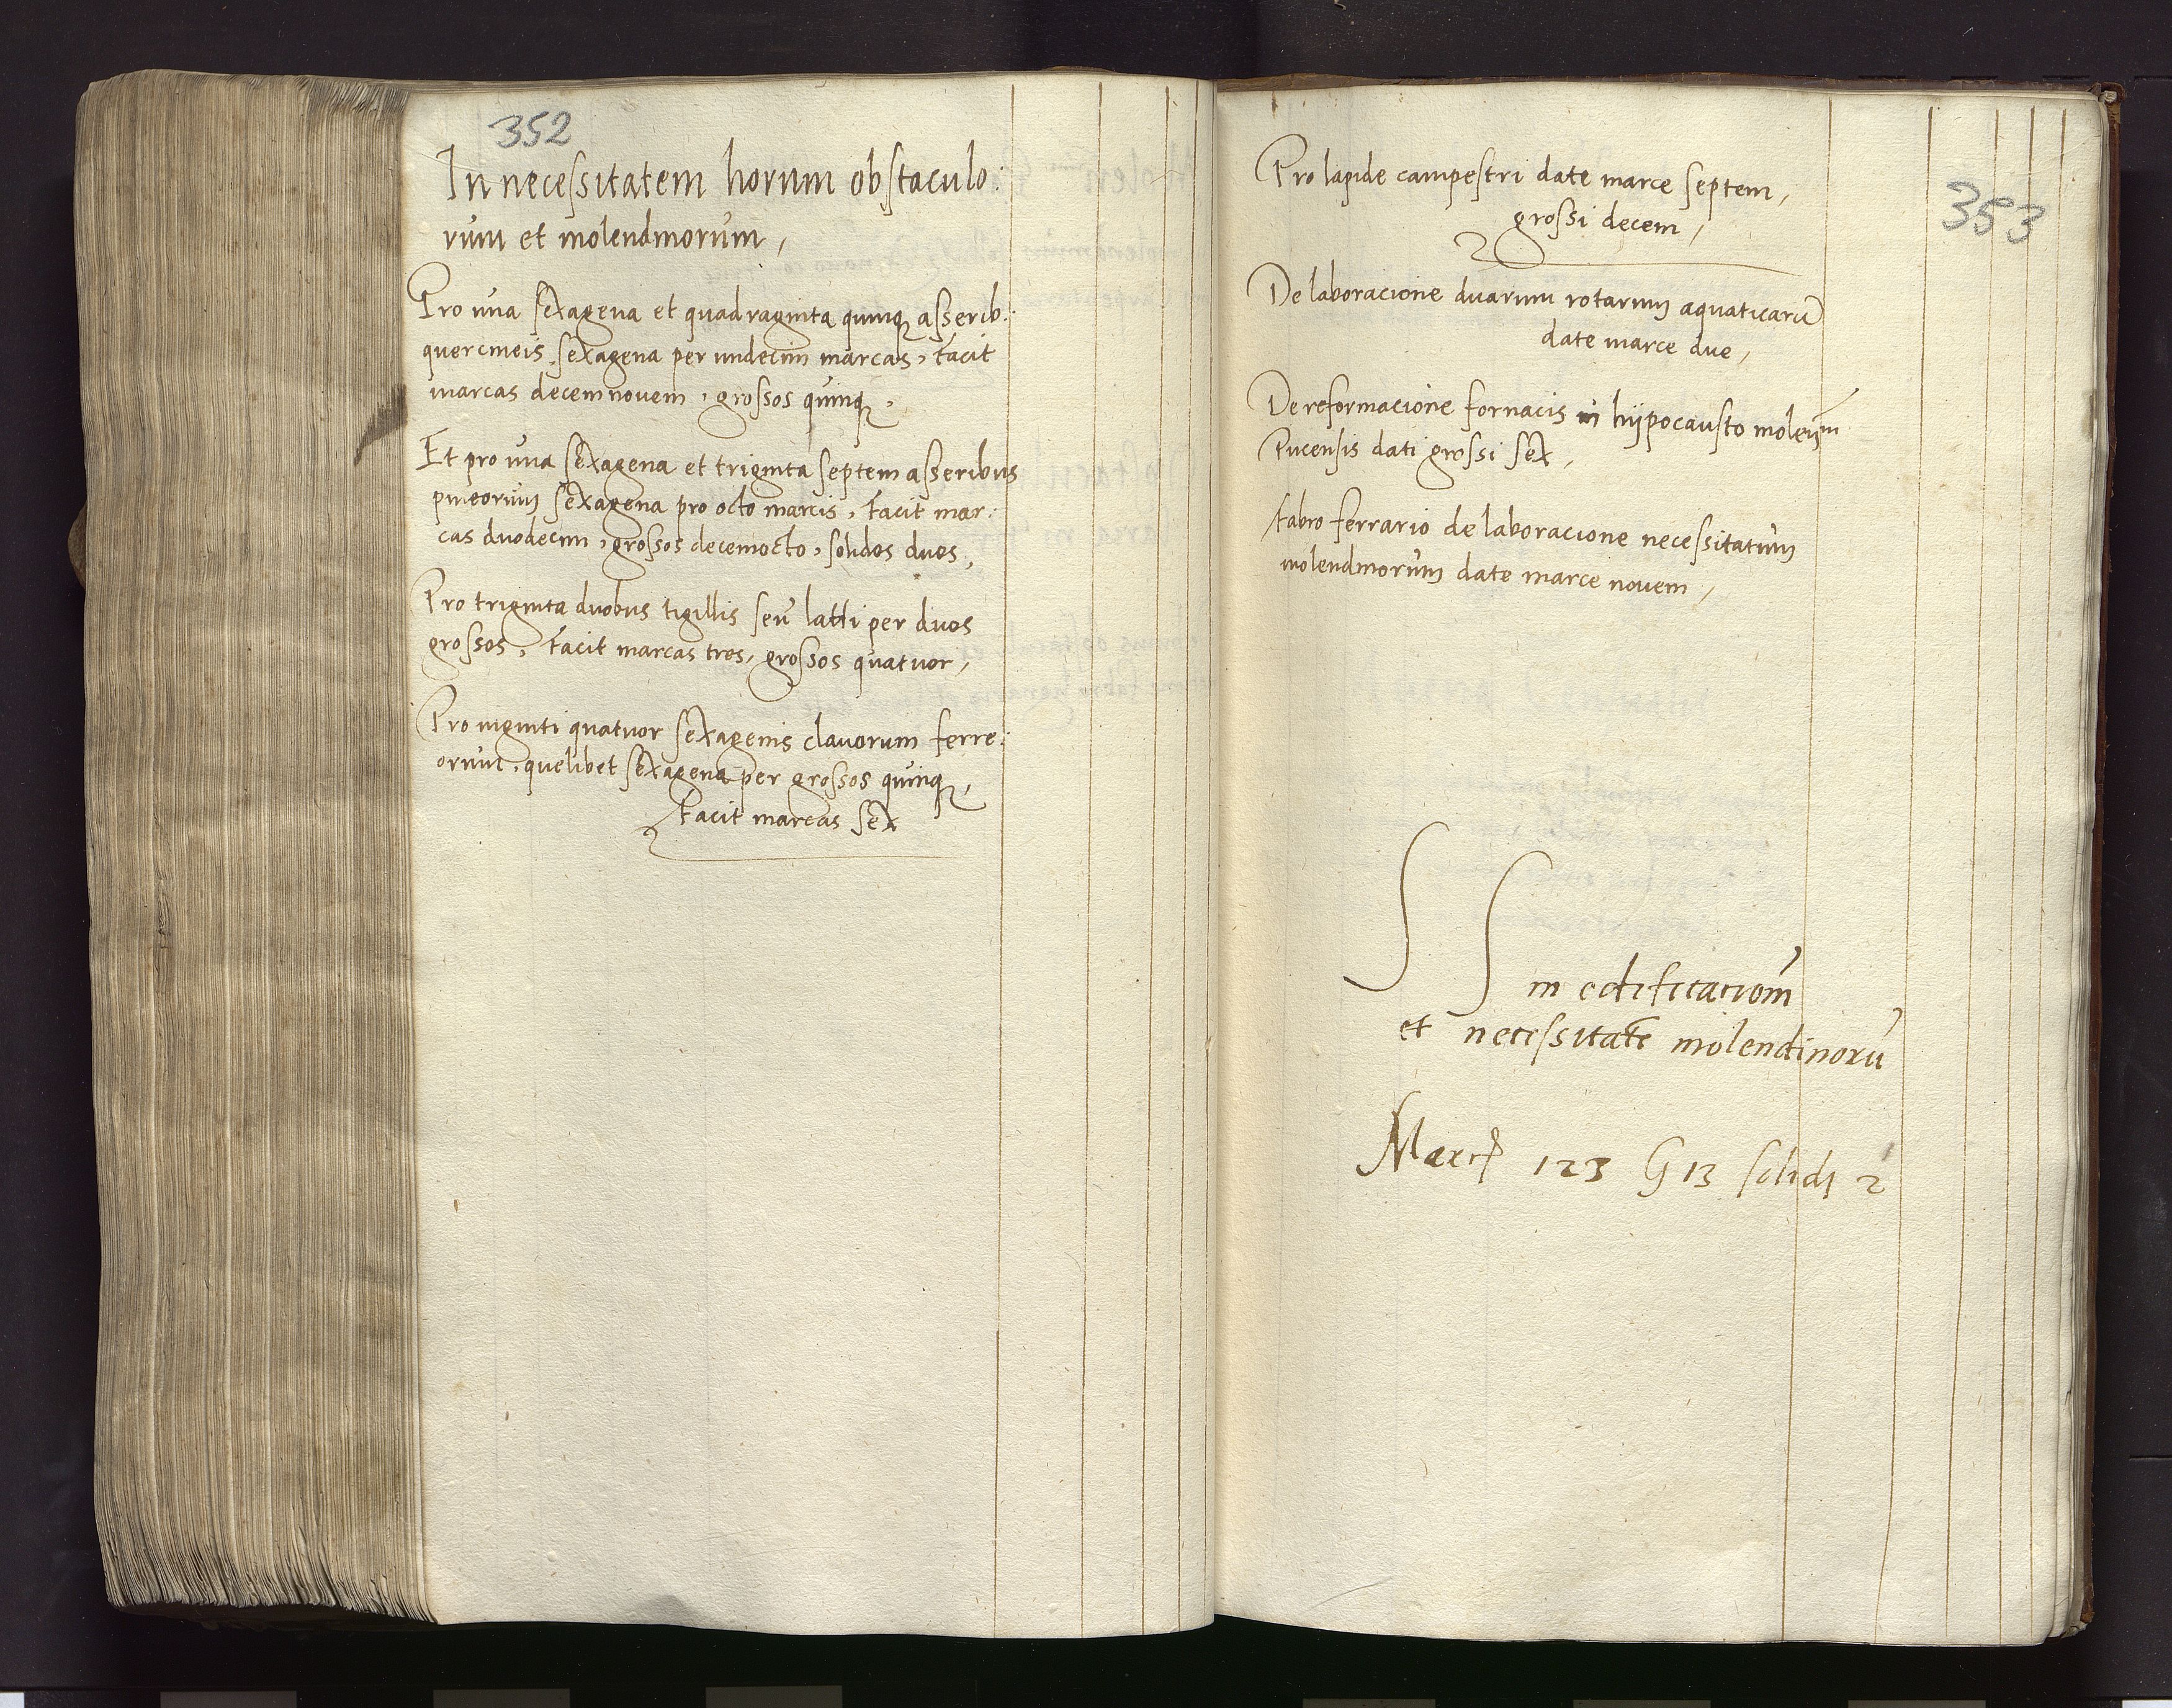 352
In necessitatem horum obstaculo:
rum et molendinorum,
Pro una sexagena et quadraginta quinq₃ asserib:
quercineis sexagena per undecim marcas, facit
marcas decemnovem, grossos quinq₃,
Et pro una sexagena et triginta septem asseribus
pineorum sexagena pro octo marcis, facit mar:
cas duodecim, grossos decemocto, solidos duos,
Pro triginta duobus tigillis seu latti per duos
grossos, facit marcas tres, grossos quatuor,
Pro viginti quatuor sexagenis clavorum ferre:
orum, quelibet sexagena per grossos quinq₃,
facit marcas sex
353
Pro lapide campestri date marce septem,
grossi decem,
De laboracione duarum rotarum aquaticarũ
date marce due,
De reformacione fornacis in hypocausto
Pucensis dati grossi sex,
fabro ferrario de laboracione necessitatum
molendinorum date marce novem,
SS in edificacionẽ
et necessitatẽ molendinorũ
Marcę 123 G 13 solidi 2